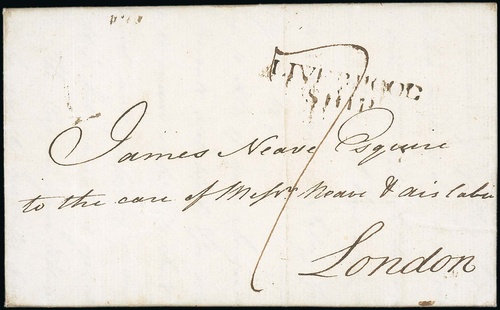 LIVERPOOL
SHIP
7
James Neave Esquire
to the care of Messrs Neave & Aislabie
London